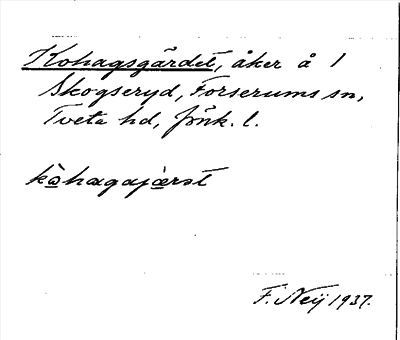 Kohagsgärdet, åker å 1
Skogseryd, Forserums sn,
Tveta hd, Jönk. l.
kòhagajærst
F. Neij 1937.